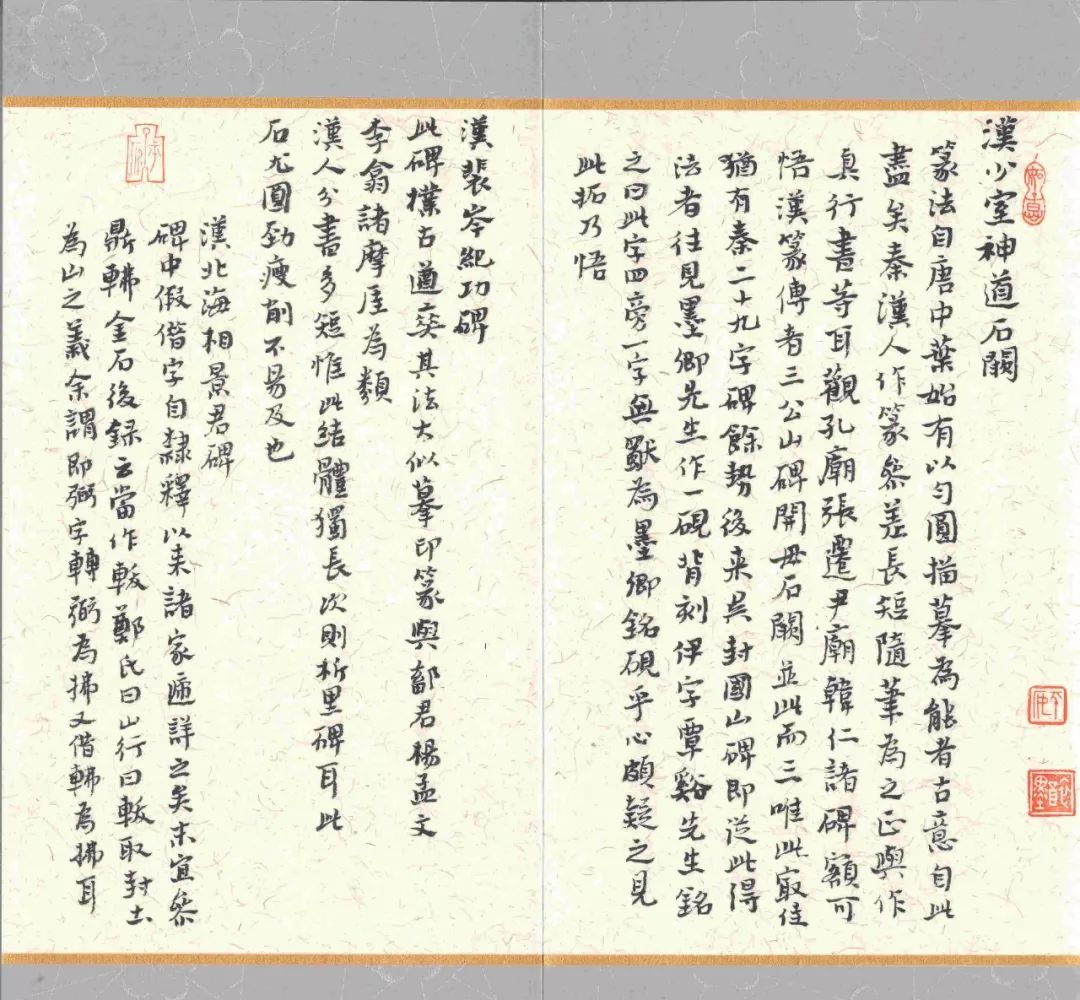 漢少室神道石闕
篆法自唐中葉始有以勻圓描摹為能者古意自此
盡矣秦漢人作篆參差長短隨筆為之正與作
真行書等耳觀孔廟張遷尹廟韓仁諸碑額可
悟漢篆傳者三公山碑開毋石闕並此而三唯此㝡佳
猶有秦二十九字碑餘勢後来吳封國山碑即從此得
法者往見墨卿先生作一硯背刻伊字覃谿先生銘
之曰此字四旁一字無獸為墨卿銘硯乎心頗疑之見
此拓乃悟
漢裴岑紀功碑
此碑樸古遒奕其法大似摹印篆與鄐君楊孟文
李翕諸摩厓為類
漢人分書多短惟此結體獨長次則析里碑耳此
石尤圓勁瘦削不易及也
漢北海相景君碑
碑中假借字自隸釋以来諸家遞詳之矣末宜參
鼎䡟金石後録云當作軷鄭氏曰山行曰軷取封土
為山之義余謂即弼字轉弼為拂又借䡟為拂耳